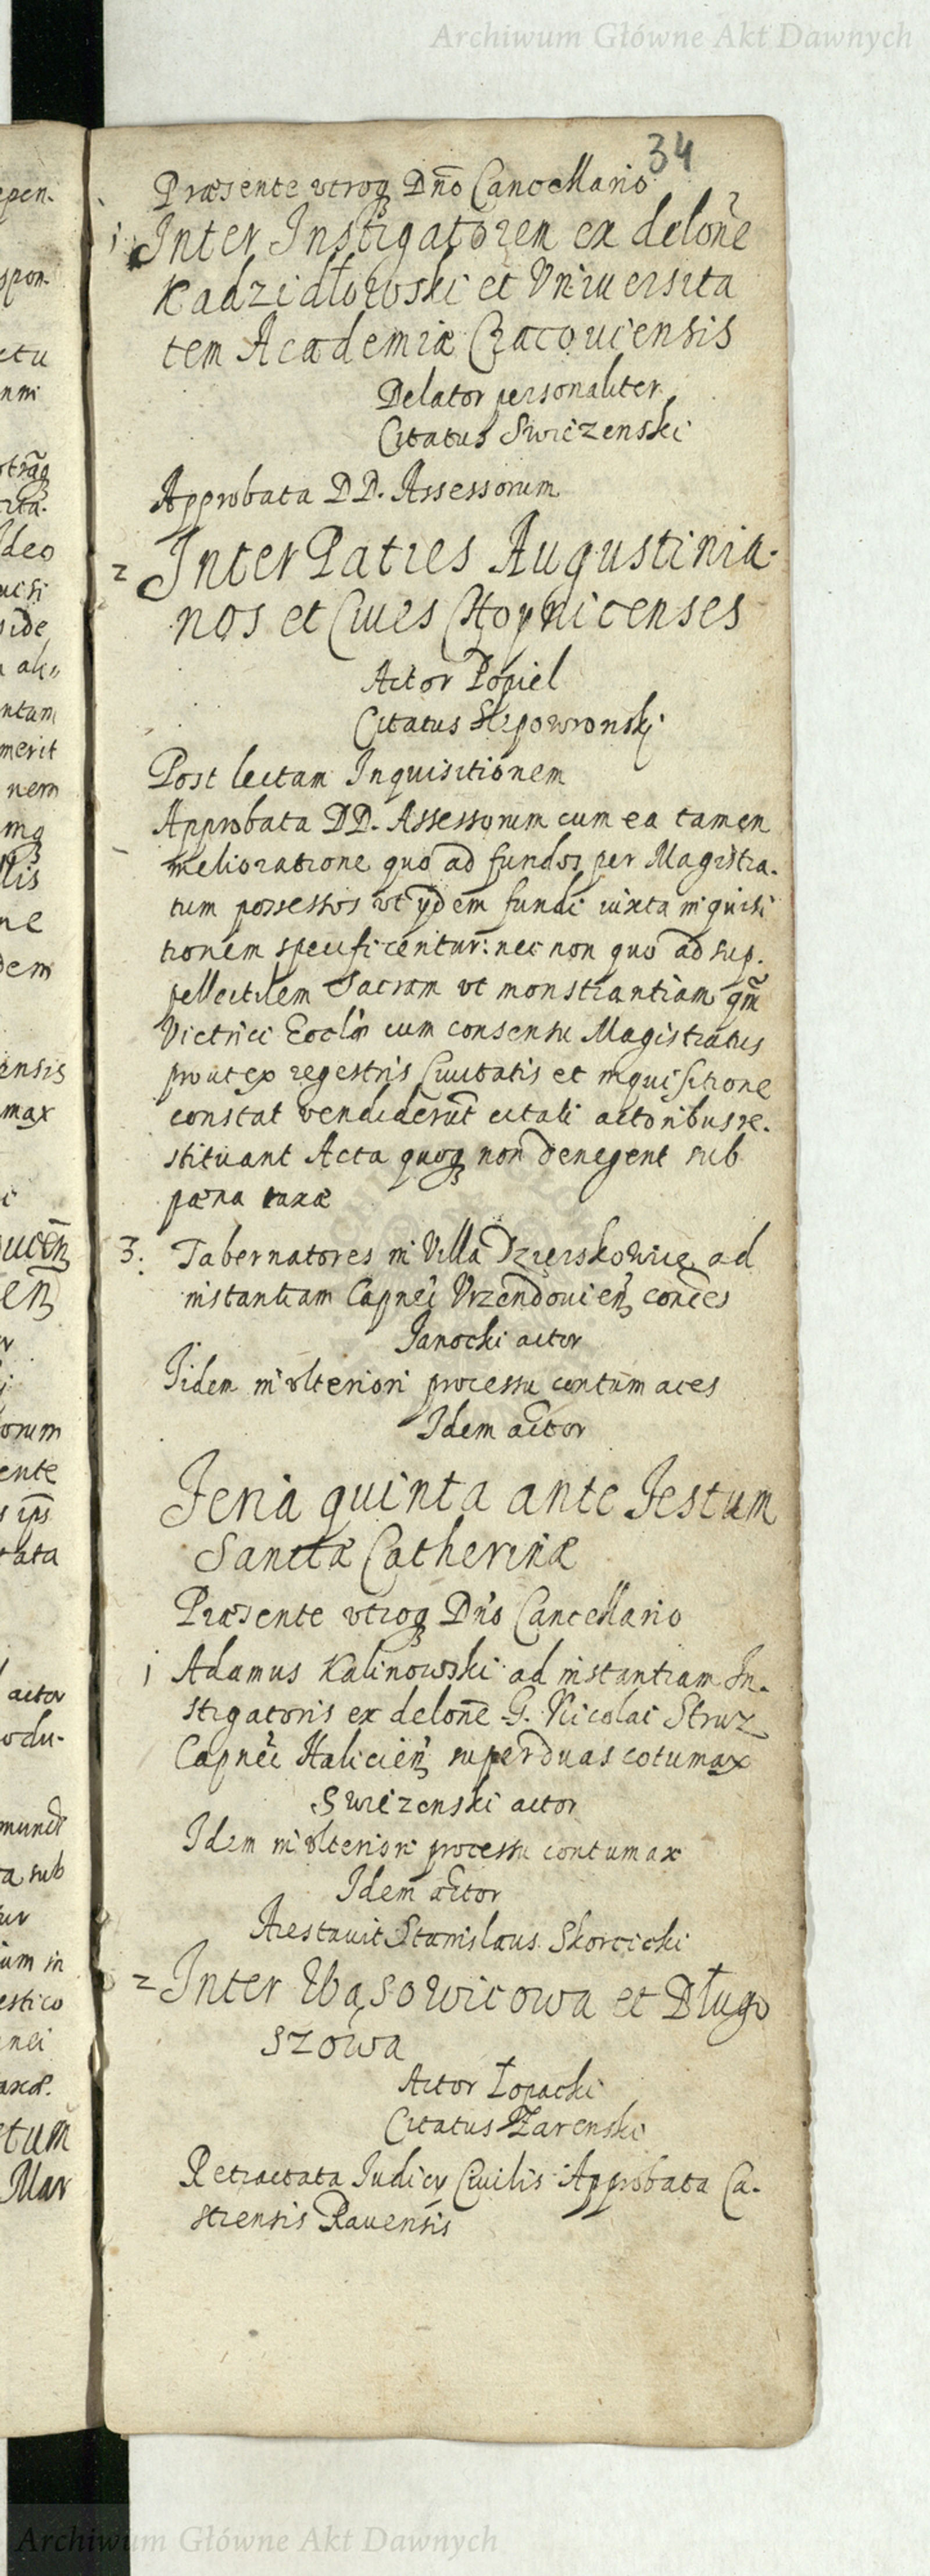 Archiwum Główne Akt Dawnych
34
Præsente utroq Dño Cancellario
1 Inter Instigatorem ex delone
Kadzidłowski et Vniuersita
tem Academiæ Cracouiensis
Delator personaliter
Citatus Swiezenski
Approbata DD. Assessorum
2 Inter Patres Augustinia-
nos et Ciues Chopnicenses
Actor Popiel
Citatus Slepowronski
Post lectam Inquisitionem
Approbata DD. Assessorum cum ea tamen
melioratione quo ad fundos per Magistra-
tum possessos vt ydem fundi iuxta inquisi
tionem specificentur: nec non quo ad sup-
pellectilem Sacram vt monstrantiam qm
Victrici Eccliæ cum consensu Magistratus
prout ex regestris Ciuitatis et inquisitione
constat vendiderut citati actoribus re-
stituant Acta quoq non denegent sub
pæna taxæ
3. Tabernatores in Villa Dzierskowice ad
instantiam Capnei Vrzendouien contes
Janocki actor
Iidem in vlteriori processu contumaces
Idem actor
Feria quinta ante Festum
Sanctæ Catherinæ
Præsente vtroq Dno Cancellario
1 Adamus Kalinowski ad instantiam In-
stigatoris ex delone G. Nicolai Strus
Capnei Halicien super duas cotumax
Swiezenski actor
Idem in vlteriori processu contumax
Idem actor
Arestauit Stanislaus Skorcicki
2 Inter Wąsowicowa et Długo
szowa
Actor Łopacki
Citatus Zarenski
Retractata Iudicy Ciuilis Approbata Ca-
strensis Rauensis
Archiwum Główne Akt Dawnych